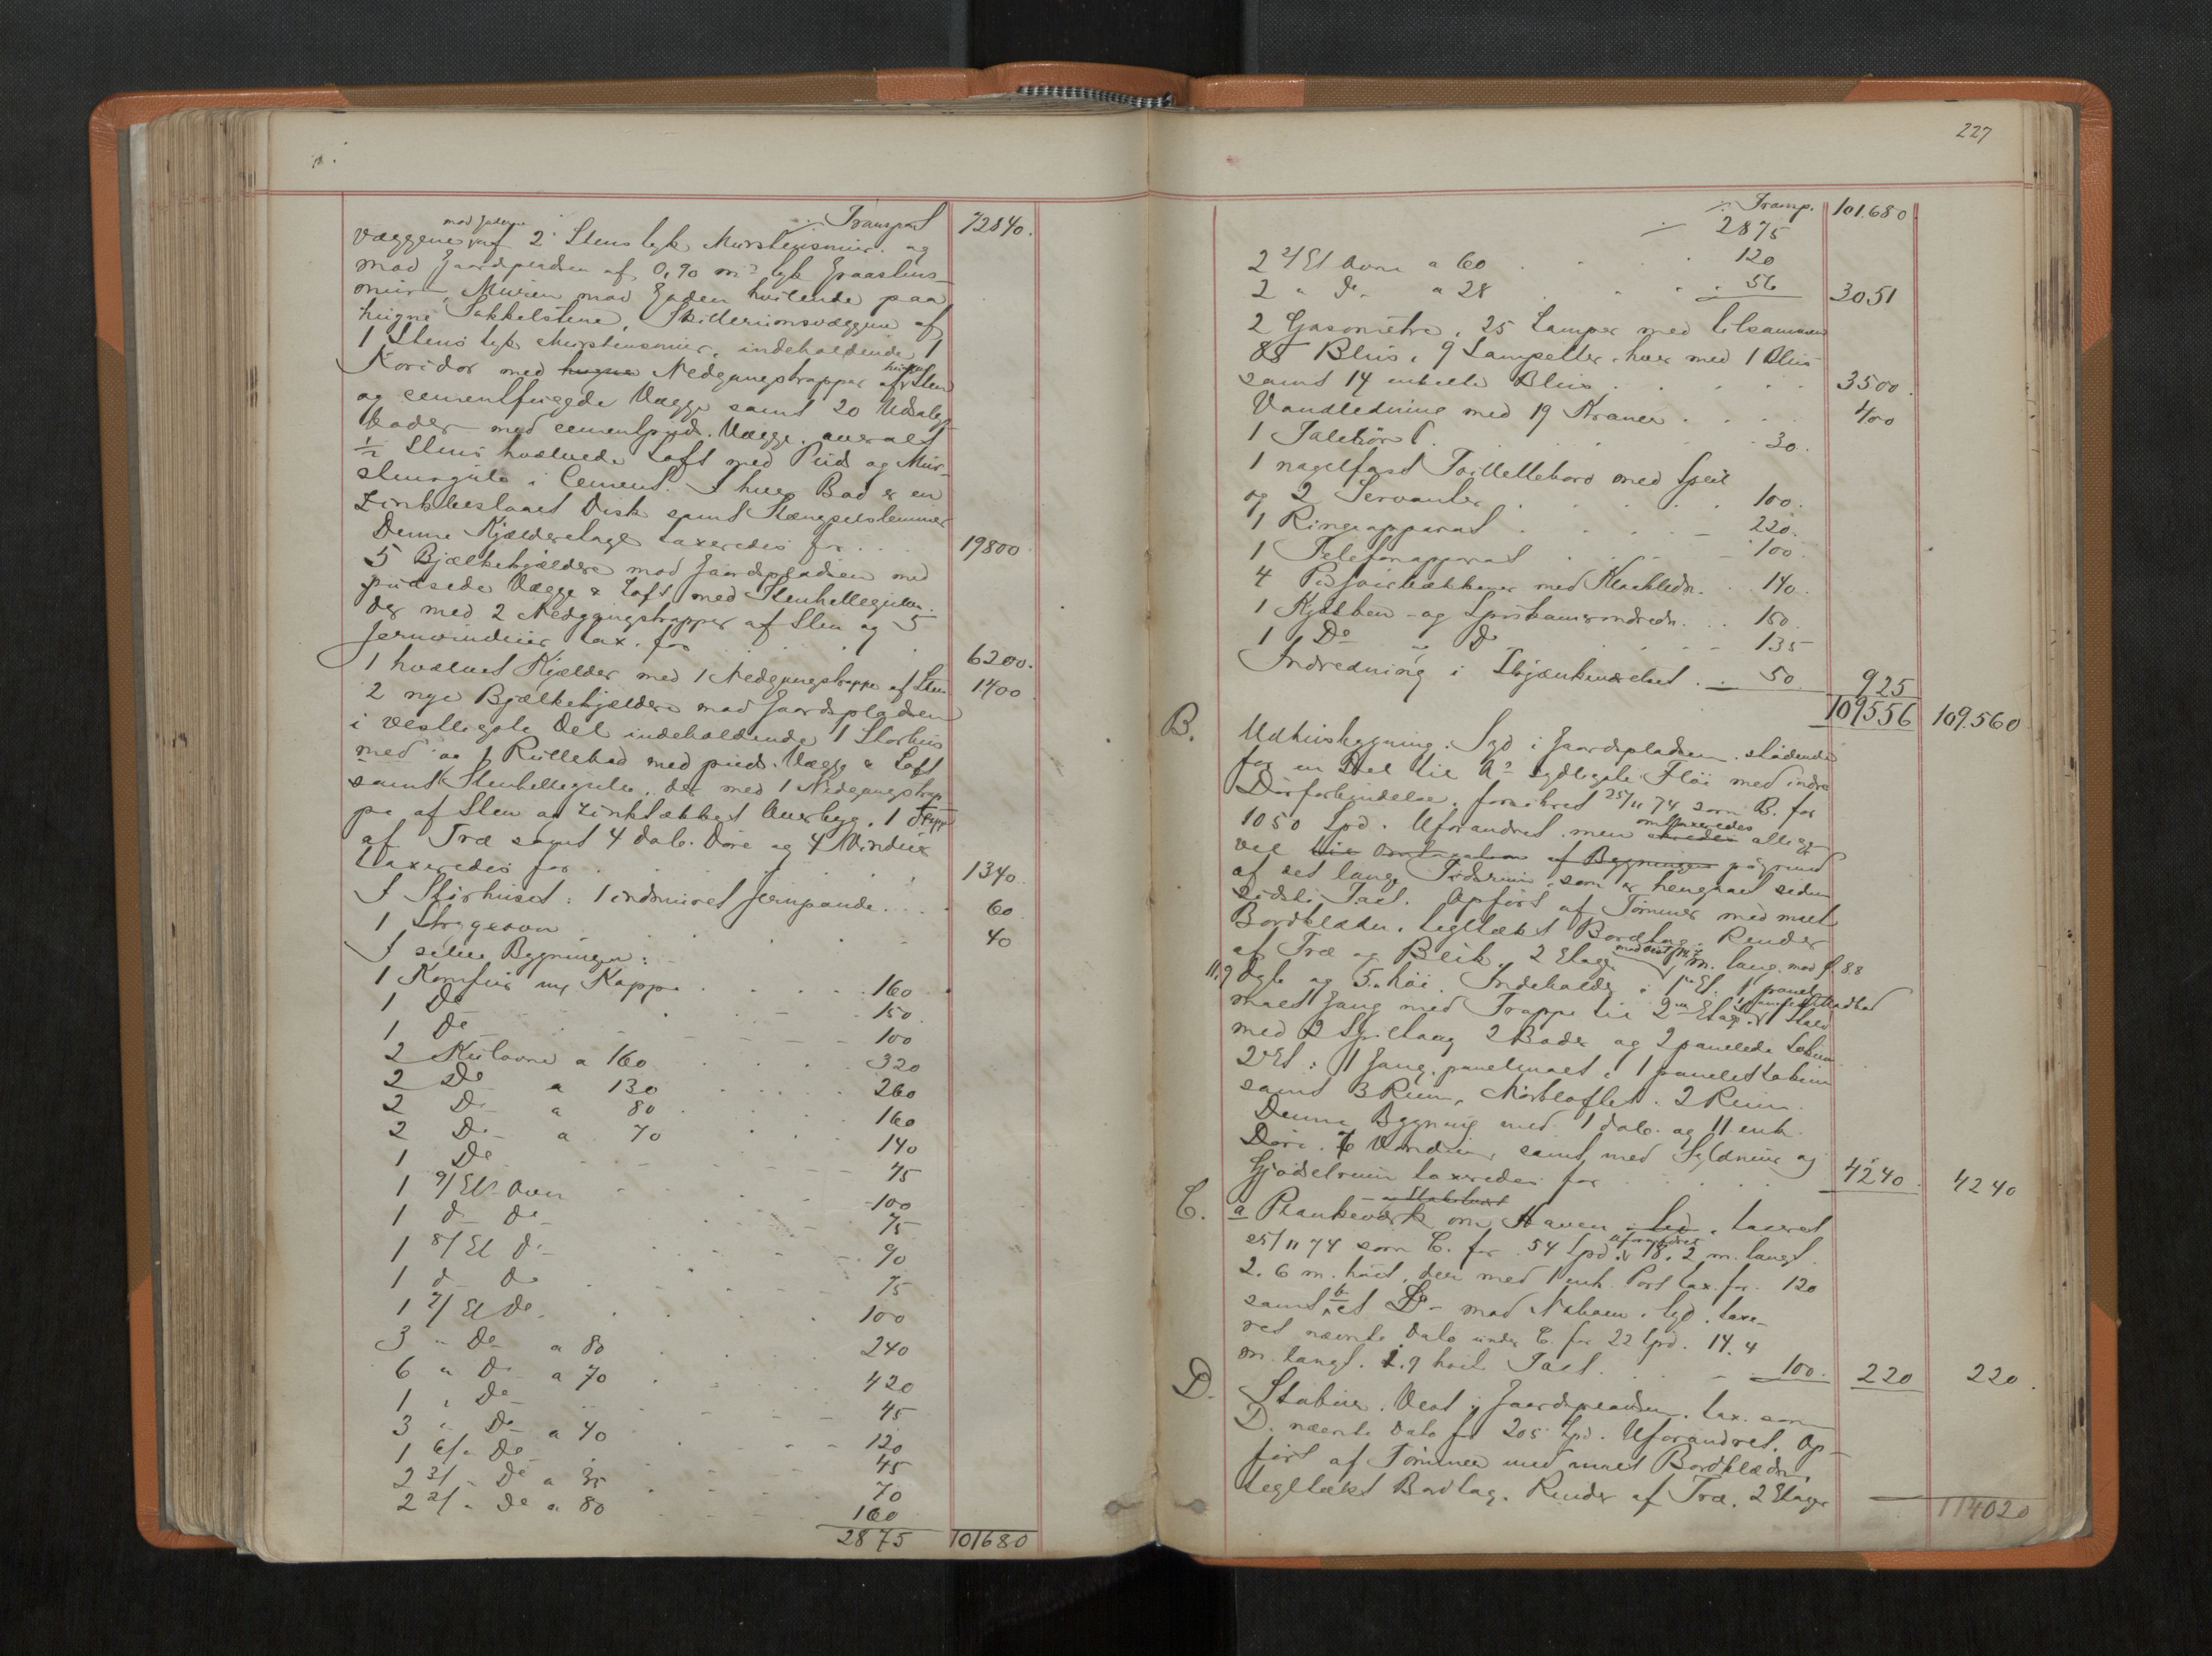 ÷ Transport 72840.
mod Gaden
væggene af 2 Stens tyk Murstensmur og
mod Gaardspladsen af 0,90 m tyk Graastens-
mur, Muren mod Gaden hvilende paa
hugne Sokkelstene, Skillerumsvæggene af
1 Stens tyk Murstensmur, indeholdende 1
Koridor med Nedgangstrapper af hugne Sten
og cementfugede Vægge samt 20 Udsalgs-
boder med cementpuds. Vægge, overalt
½ Stens hvælvede Loft med Puds og Mur-
stensgulv i Cement. I hver Bod er en
Zinkbeslaaet Disk samt Stængselslemmer
Denne Kjælderetage taxeredes for . . . 19800
5 Bjælkekjældere mod Gaardspladsen med
pudsede Vægge & Loft med Stenhellegulv.
Der med 2 Nedgangstrapper af Sten og 5
Jernvinduer tax. for . . . . 6200.
1 hvælvet Kjælder med 1 Nedgangstrappe af Sten 1400
2 nye Bjælkekjældere mod Gaardspladsen
i vestligste Del indeholdende 1 Storhus
med og 1 Rullebod med puds. Vægge & Loft
samt Stenhellegulv. Der med 1 Nedgangstrap
pe af Sten og zinktækket Overbyg. 1 Trappe
af Træ samt 4 dob. Døre og 4 Vinduer
taxeredes for . . . . . 1340
I Storhuset: 1 indmuret Jernpande . . . 60
1 Strygeovn . . . . . 40
I selve Bygningen:
1 Komfur m/ Kappe . . . . . 160
1 Do . . . . 150
1 Do . . . . 100
2 Kulovne a 160 . . . . 320
2 Do a 130 . . . . 260
2 Do a 80 . . . . 160
2 Do a 70 . . . . 140
1 Do . . . . 75
1 9/ Et. Ovn . . . . 100
1 d Do . . . . 75
1 8/ Et Do . . . . 90
1 d Do . . . . 75
1 7/ Et Do . . . . 100
3 " Do a 80 . . . . 240
6 " Do a 70 . . . . 420
1 " Do . . . . 45
3 " Do a 40 . . . . 120
1 6/ " Do . . . . 45
2 3/ " Do a 35 . . . . 70
2 2/ " Do a 80 . . . . 160
2875 101680
227
÷ Transp. 101.680
÷ 2875
2 2/ Et Ovne a 60 . . . . 120
2 " Do a 28 . . . . 56 3051
2 Gasometre, 25 Lamper med tilsammen
85 Blus, 9 Lampetter hver med 1 Blus
samt 14 enkelte Blus . . . . . 3500.
Vandledning med 19 Kraner . . . . 400
1 Talerør . . . . . 30.
1 nagelfast Toilettebord med Speil
og 2 Servanter . . . . . 100.
1 Ringeapparat . . . . 220.
1 Telefonapparat . . . . 100.
4 med Kloakledn. . . 140.
1 Kjøkken- og Spiskamerindredn. . . 150.
1 Do " D . . . . 135
Indredning i Skjænkeværelset . . 50. 925
109556 109.560
B. Udhusbygning. Syd i Gaardspladsen, stødende
for en Del til A's sydligste Fløi med indre
Dørforbindelse, forsikret 25/11 74 som B. for
1050 Spd. Uforandret men omtaxeredes allige-
vel pågrund
af det lange Tidsrum, som er hengaaet siden
sidste Taxt. Opført af Tømmer med malt
Bordklædn. tegltækt Bordtag. Render
af Træ og Blik. 2 Etager m. lang mod S. 8.8
11.9 dyb og 5. høi. Indeholder i 1ste Et. 1 panel
malt Gang med Trappe til 2den Etage, 1 Stald
med 2 Spiltaug 2 Boder og 2 panelede
2d Et: 1 Gang, panelmalt, 1 panelet
samt 3 Rum, Mørkloftet. 2 Rum.
Denne Bygning med 1 dob. og 11 enk.
Døre, 6 Vinduer samt med Syldmur og
Gjødselrum taxeredes for . . . . 4240. 4240
C. a Plankeværk om Haven, taxeret
25/11 74 som C. for 54 Spd uforandret 18.2 m. langt.
2.6 m. høit, der med 1 enk. Port tax. for 120
samt b et Do mod Naboen i Syd, taxe-
ret nævnte Dato under C. for 22 Spd. 14.4
m. langt. 1.9 høit Taxt. . . . 100. 220 220.
D. Stabur. Vest i Gaardspladsen, tax. som
D. nævnte Dato for 205 Spd. Uforandret. Op-
ført af Tømmer med malt Bordklædn.,
tegltækt Bordtag. Render af Træ. 2 Etager
114020